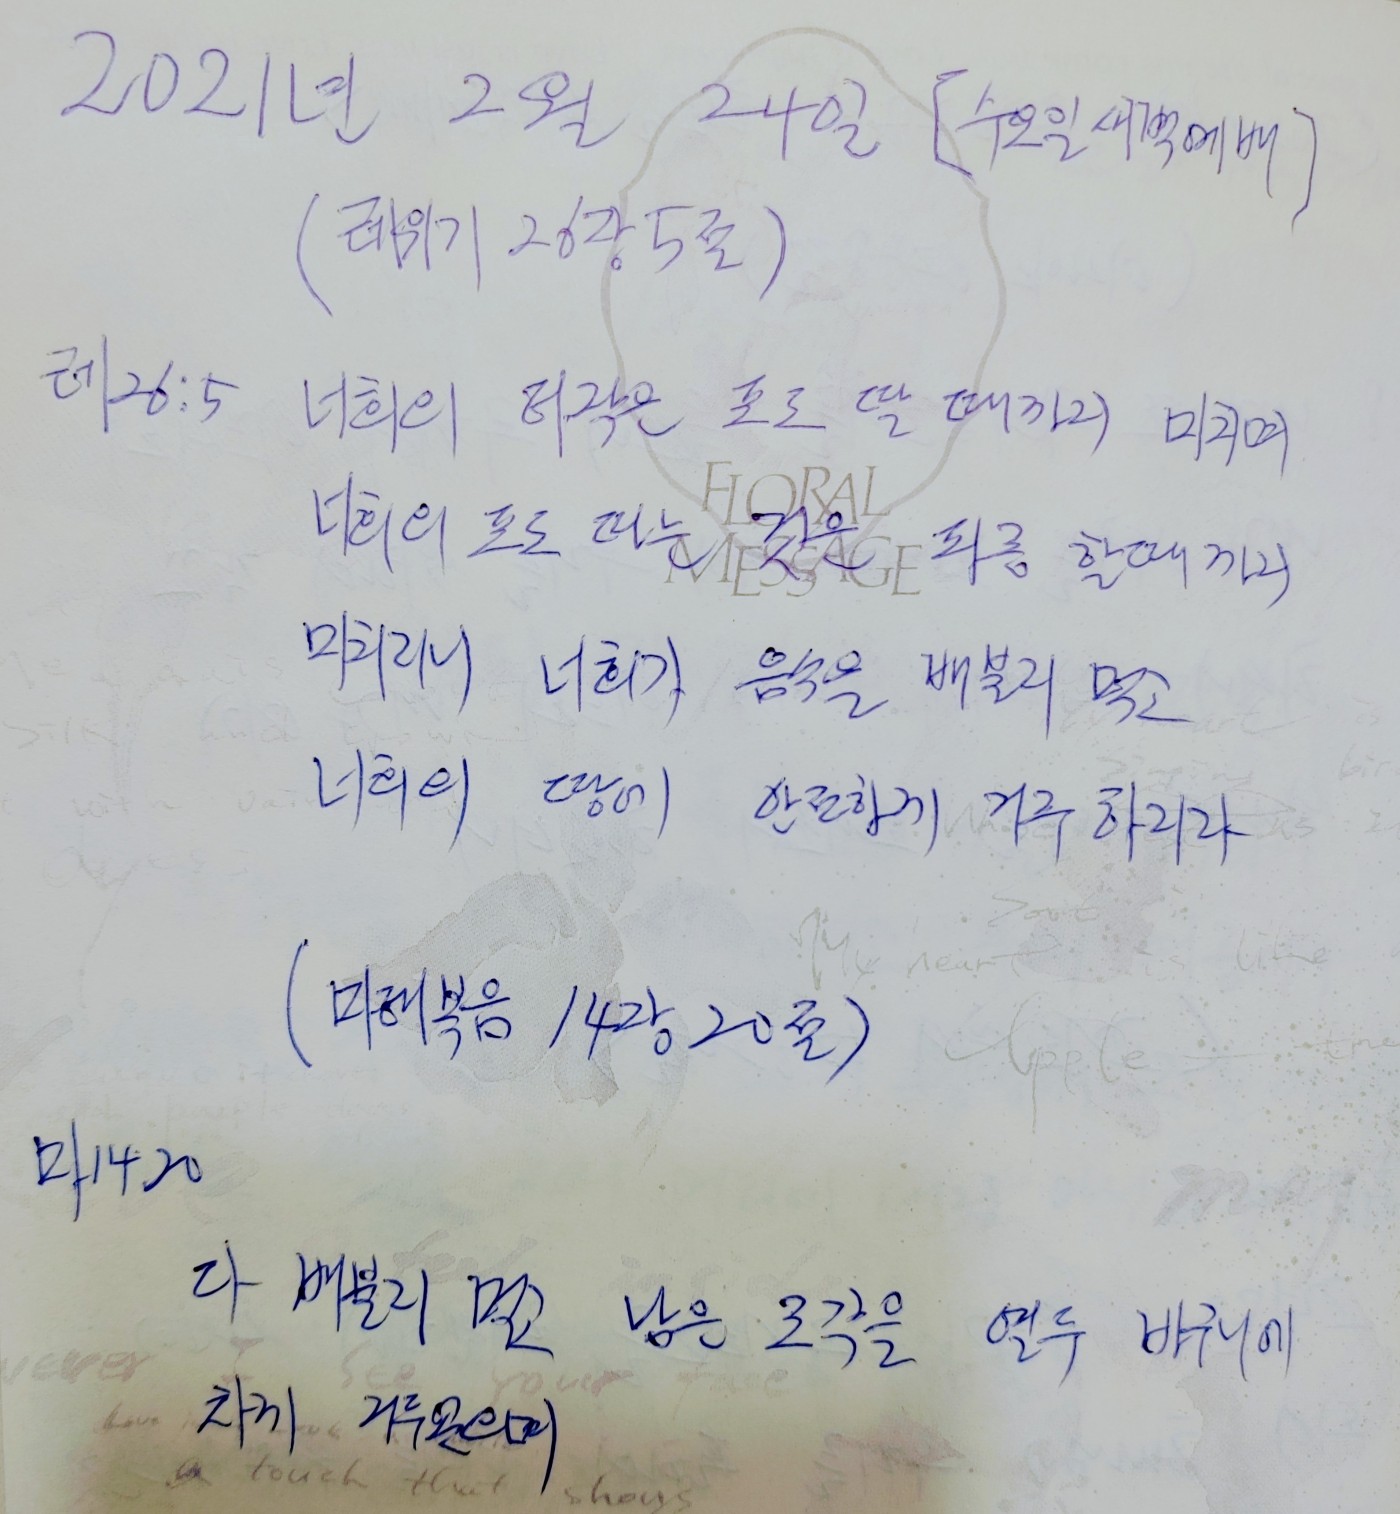 2021년 2월 24일 [수요일새벽예배]
(레위기 26장 5절)
레26:5 너희의 타작은 포도 딸 때까지 미치며
너희의 포도 따는 것은 파종 할때까지
미치리니 너희가 음식을 배불리 먹고
너희의 땅에 안전하게 거주하리라
FLORAL
MESSAGE
(마태복음 14장20절)
마14:20
다 배불리 먹고 남은 조각을 열두 바구니에
차게 거두었으며
My heart is like
Apple
never I see your face
a touch that shays